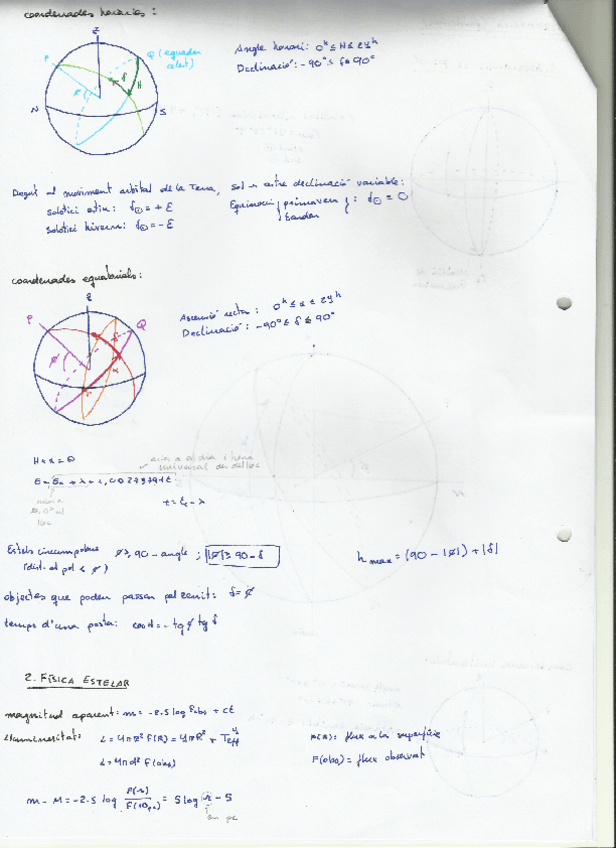 coordenades horàries:
Z
P
Q (equador celest)
δ
H
N
S
Angle horari: 0ʰ ≤ H ≤ 24ʰ
Declinació: -90° ≤ δ ≤ 90°
Degut al moviment orbital de la Terra, Sol → astre declinació variable:
solstici estiu: δ☉ = + ε
solstici hivern: δ☉ = - ε
Equinocci { primavera } : δ☉ = 0
tardor
coordenades equatorials:
Z
P
Q
φ
α
Ascensió recta: 0ʰ ≤ α ≤ 24ʰ
Declinació: -90° ≤ δ ≤ 90°
H + α = θ
universal
t =
Estels circumpolars φ ≥ 90 - angle ; |φ| ≥ 90 - δ
(dist. al pol < φ)
h max = (90 - |φ|) + |δ|
objectes que poden passar pel zenit: δ = φ
temps d'una posta: cos H = - tg φ tg δ
2. FÍSICA ESTELAR
magnitud aparent: m = -2.5 log Fobs + ct
Lluminositat: L = 4πR² F(R) = 4πR² σ Teff⁴
L = 4πd² F(obs)
F(R): flux a la superfície
F(obs) = flux observat
m - M = -2.5 log F(r)/F(10pc) = 5 log r - 5
en pc